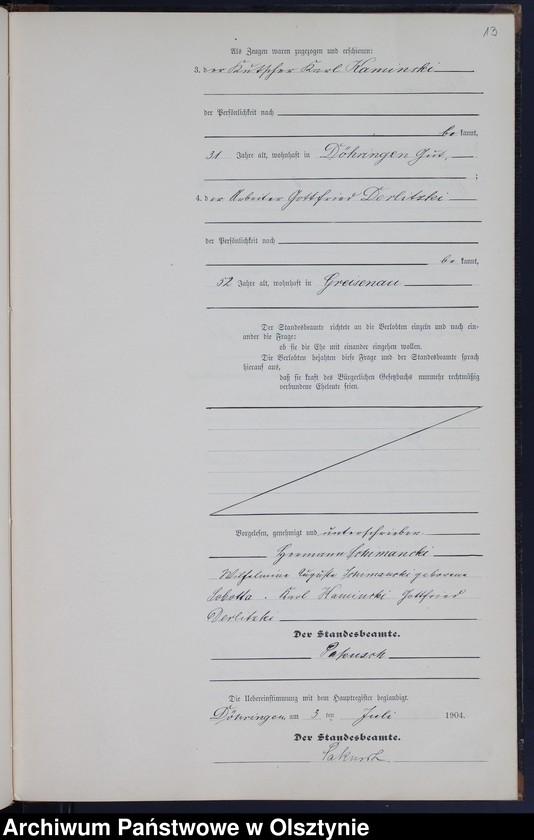 13
Als Zeugen waren zugezogen und erschienen:
3. der Kutscher Karl Kaminski
der Persönlichkeit nach
be kannt,
31 Jahre alt, wohnhaft in Döhringen Gut,
;
4. der Arbeiter Gottfried Derlitzki
der Persönlichkeit nach
be kannt,
52 Jahre alt, wohnhaft in Greisenau
Der Standesbeamte richtete an die Verlobten einzeln und nach ein-
ander die Frage:
ob sie die Ehe mit einander eingehen wollen.
Die Verlobten bejahten diese Frage und der Standesbeamte sprach
hierauf aus,
daß sie kraft des Bürgerlichen Gesetzbuchs nunmehr rechtmäßig
verbundene Eheleute seien.
Vorgelesen, genehmigt und unterschrieben
Hermann Schimancki
Wilhelmine Auguste Schimancki geborene
Sobotta. Karl Kaminski Gottfried
Derlitzki
Der Standesbeamte.
Pakusch
Die Uebereinstimmung mit dem Hauptregister beglaubigt.
Döhringen, am 3 ten Juli 1904.
Der Standesbeamte.
Pakusch
Archiwum Państwowe w Olsztynie